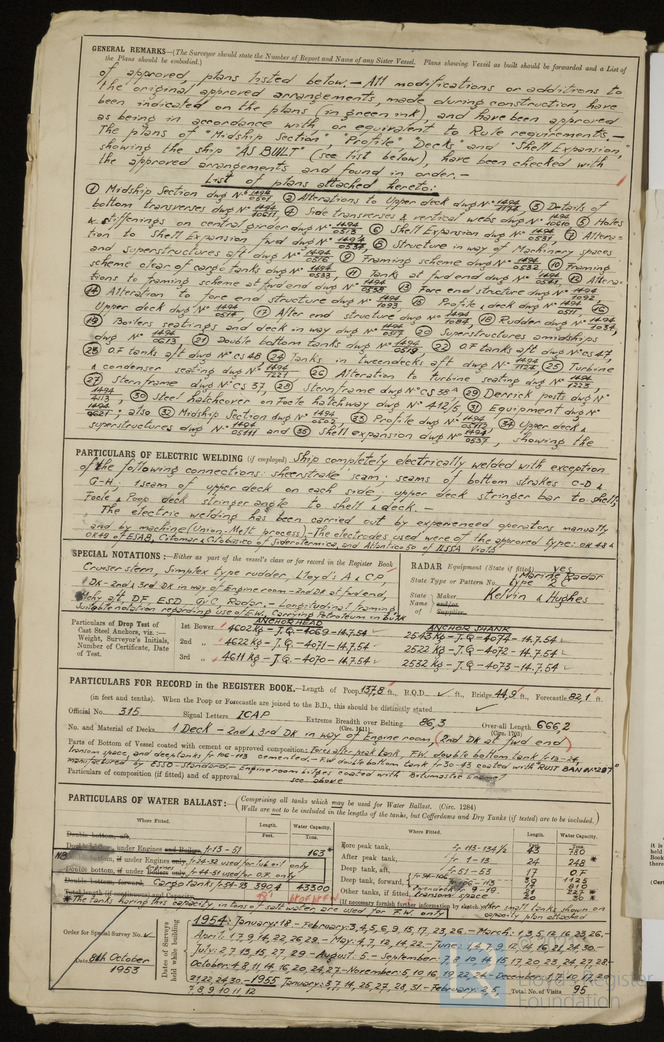 GENERAL REMARKS—(The Surveyor should state the Number of Report and Name of any Sister Vessel. Plans showing Vessel as built should be forwarded and a List of
the Plans should be embodied.)
of approved plans listed below.— All modifications or additions to
the original approved arrangements made during construction have
been indicated on the plans in green ink, and have been approved
as being in accordance with, or equivalent to Rule requirements.—
The plans of "Midship Section", "Profile", "Decks" and "Shell Expansion,"
showing the ship "AS BUILT" (see list below), have been checked with
the approved arrangements and found in order.—
List of plans attached hereto:
① Midship Section dwg Nº 1494/0501 ② Alterations to Upper deck dwg Nº ③ Details of
bottom transverses dwg Nº ④ Side transverses & vertical webs dwg Nº ⑤ Holes
& stiffenings on central girder dwg Nº 1494/0513 ⑥ Shell Expansion dwg Nº 1494/0537 ⑦ Altera-
tion to Shell Expansion fwd dwg Nº ⑧ Structure in way of Machinery spaces
and superstructures aft dwg Nº 1494/0516 ⑨ Framing scheme dwg Nº 1494/0532 ⑩ Framing
scheme clear of cargo tanks dwg Nº 1494/0533 ⑪ Tanks at fwd end dwg Nº ⑫ Altera-
tions to framing scheme at fwd end dwg Nº ⑬ Fore end structure dwg Nº 1494/1092
⑭ Alteration to fore end structure dwg Nº 1494/1093 ⑮ Profile & deck dwg Nº 1494/0511 ⑯
Upper deck dwg Nº 1494/0514 ⑰ After end structure dwg Nº 1494/1084 ⑱ Rudder dwg Nº 1494/1034
⑲ Boilers seatings and deck in way dwg Nº 1494/0517 ⑳ Superstructures amidships
dwg Nº 1494/0613 ㉑ Double bottom tanks dwg Nº 1494/0519 ㉒ O.F tanks aft dwg Nº CS 47
㉓ O.F tanks aft dwg Nº CS 48 ㉔ Tanks in tweendecks aft dwg Nº 1494/1124 ㉕ Turbine
& condenser seating dwg Nº 1494/1221 ㉖ Alteration to turbine seating dwg Nº 1494/1225
㉗ Sternframe dwg Nº CS 37, ㉘ Sternframe dwg Nº CS 38 ㉙ Derrick posts dwg Nº
1494/4113, ㉚ Steel hatchcover on Focle hatchway dwg Nº 412/5 ㉛ Equipment dwg Nº
1494/0621; also ㉜ Midship Section dwg Nº 1494/0502, ㉝ Profile dwg Nº 1494/05112 ㉞ Upper deck &
superstructures dwg Nº 1494/05111 and ㉟ Shell expansion dwg Nº 1494/0537, showing the
PARTICULARS OF ELECTRIC WELDING (if employed) Ship completely electrically welded with exception
of the following connections: sheerstrake seam; seams of bottom strakes C-D &
G-H; 1 seam of upper deck on each side; upper deck stringer bar to shell;
Focle & Poop deck stringer angle to shell & deck.—
The electric welding has been carried out by experienced operators manually
and by machine (Union-Melt process).—The electrodes used were of the approved type: OK 48 &
OK 48 of ESAB, Citomar & Citobasico of Siderotermica, and Atlantic 98 of ILSSA Viola
SPECIAL NOTATIONS:—Either as part of the vessel's class or for record in the Register Book
Cruiser stern, Simplex type rudder, Lloyd's A & C.P.,
1 Dk - 2nd & 3rd DK in way of Engine room - 2nd DK at fwd end,
Mchy aft, DF, ESD - Gy C. Radar.— Longitudinal framing,
Suitable notation regarding use of F.W., Carrying Petroleum in bulk
RADAR Equipment (State if fitted) yes
State Type or Pattern No. Marine Radar type 2 C
State Name of Maker and/or Supplier Kelvin & Hughes
Particulars of Drop Test of
Cast Steel Anchors, viz. :—
Weight, Surveyor's Initials,
Number of Certificate, Date
of Test.
ANCHOR HEAD ANCHOR SHANK
1st Bower 4602 kg - J.Q - 4069 - 14.7.54 2543 kg - J.Q - 4074 - 14.7.54
2nd „ 4622 kg - J.Q - 4071 - 14.7.54 2522 kg - J.Q - 4072 - 14.7.54
3rd „ 4611 kg - J.Q - 4070 - 14.7.54 2532 kg - J.Q - 4073 - 14.7.54
PARTICULARS FOR RECORD in the REGISTER BOOK.—Length of Poop 137,8 ft., R.Q.D. ✓ ft., Bridge 44,9 ft., Forecastle 82,1 ft.
(in feet and tenths). When the Poop or Forecastle are joined to the B.D., this should be distinctly stated ✓
Official No. 315 Signal Letters ICAP Extreme Breadth over Belting 86,3 Over-all Length 666,2
(Circ. 1611) (Circ. 1703)
No. and Material of Decks 1 Deck - 2nd & 3rd DK in way of Engine room, (2nd DK at fwd end)
Parts of Bottom of Vessel coated with cement or approved composition: Fore & after peak tank, F.W. double bottom tank fr 13-24,
transom space, and deep tanks fr 106-113 cemented.— F.W double bottom tank fr 30-43 coated with RUST BAN Nº 297
manufactured by ESSO-Standard.— Engine room bilges coated with Bitumastic Enamel
Particulars of composition (if fitted) and of approval see above
PARTICULARS OF WATER BALLAST:— (Comprising all tanks which may be used for Water Ballast. (Circ. 1284)
Wells are not to be included in the lengths of the tanks, but Cofferdams and Dry Tanks (if tested) are to be included.)
Where Fitted. Length. Feet. Water Capacity. Tons.
Double bottom, aft,
Double bottom, under Engines and Boilers fr 13-51 163*
NB Double bottom, if under Engines only, fr 24-32 used for lub oil only
Double bottom, if under Boilers only fr 44-51 used for O.F only
Double bottom, forward, Cargo tanks fr 54-93 390.4 43300
Total length (if continuous) and Capacity
Where Fitted. Length. Water Capacity.
Fore peak tank, fr 113-134 1/2 43 780
After peak tank, fr 1-13 24 248 *
Deep tank, aft, fr 51-53 17 OF
Deep tank, forward,
Other tanks, if fitted, transom space 20 30 *
(If necessary furnish further information by sketch.) other small tanks shown on
capacity plan attached
*The tanks having this capacity, in tons of salt water, are used for F.W. only
Order for Special Survey No. ✓
Date 8th October
1953
Dates of Surveys held while building
1954: January: 18 - February: 3,4,5,6,9,15,17,23,26.- March: 1,3,5,12,16,23,26.-
April: 1,7,9,14,22,26,29.- May: 4,7,12,14,22.- June: 1,4,7,9,12,14,16,21,24,30.-
July: 2,7,13,15,27,29 - August: 5.- September: 7,8,10,14,15,17,20,23,24,27,28-
October: 4,8,11,14,16,20,24,27.- November: 5,10,16,19,22,24.- December: 1,7,10,17,20-
21,22,24,30.- 1955 January: 3,7,14,25,27,28,31 - February: 2,5,
7,8,9,10,11,12 Total No. of Visits 95
Lloyd's Register
Foundation